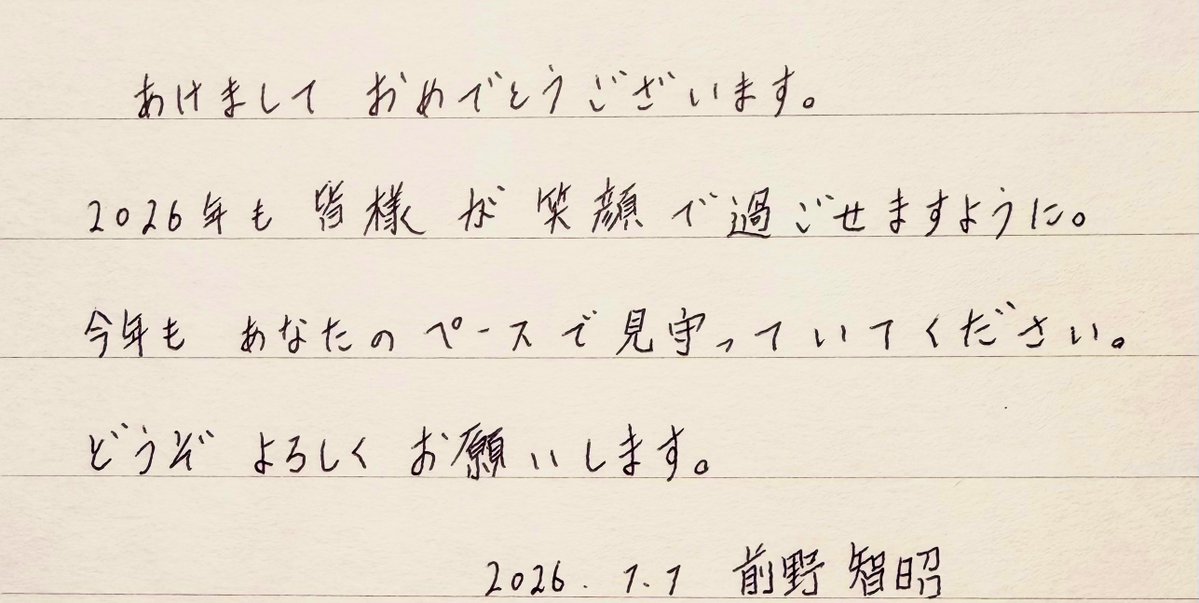 あけまして おめでとうございます。
2026年も 皆様 が 笑顔 で 過ごせますように。
今年も あなたの ペースで 見守っていてください。
どうぞ よろしく お願いします。
2026. 1.1 前野 智昭